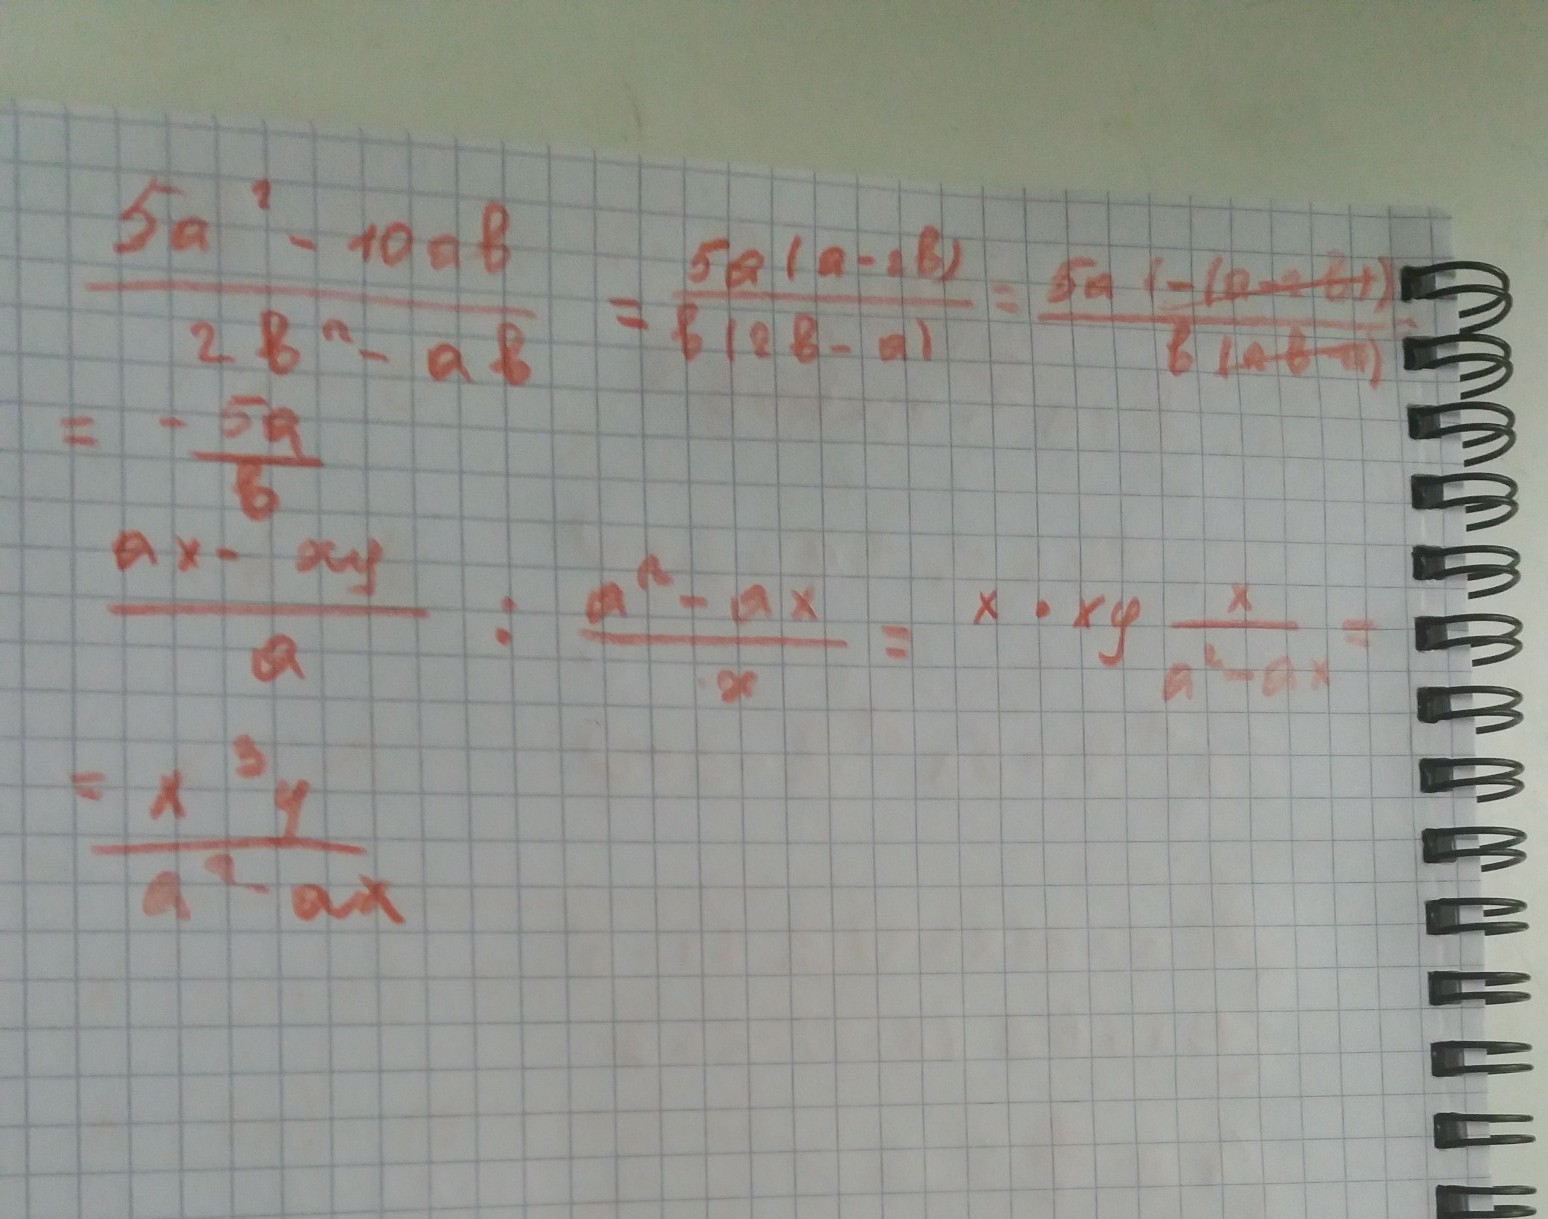 5a² - 10ab / 2b² - ab = 5a(a-2b) / b(2b-a) = 5a(-(a-2b)) / b(2b-a)
= - 5a / b
ax - xy / a : a² - ax / x = x · xy x / a² - ax =
= x³y / a² - ax